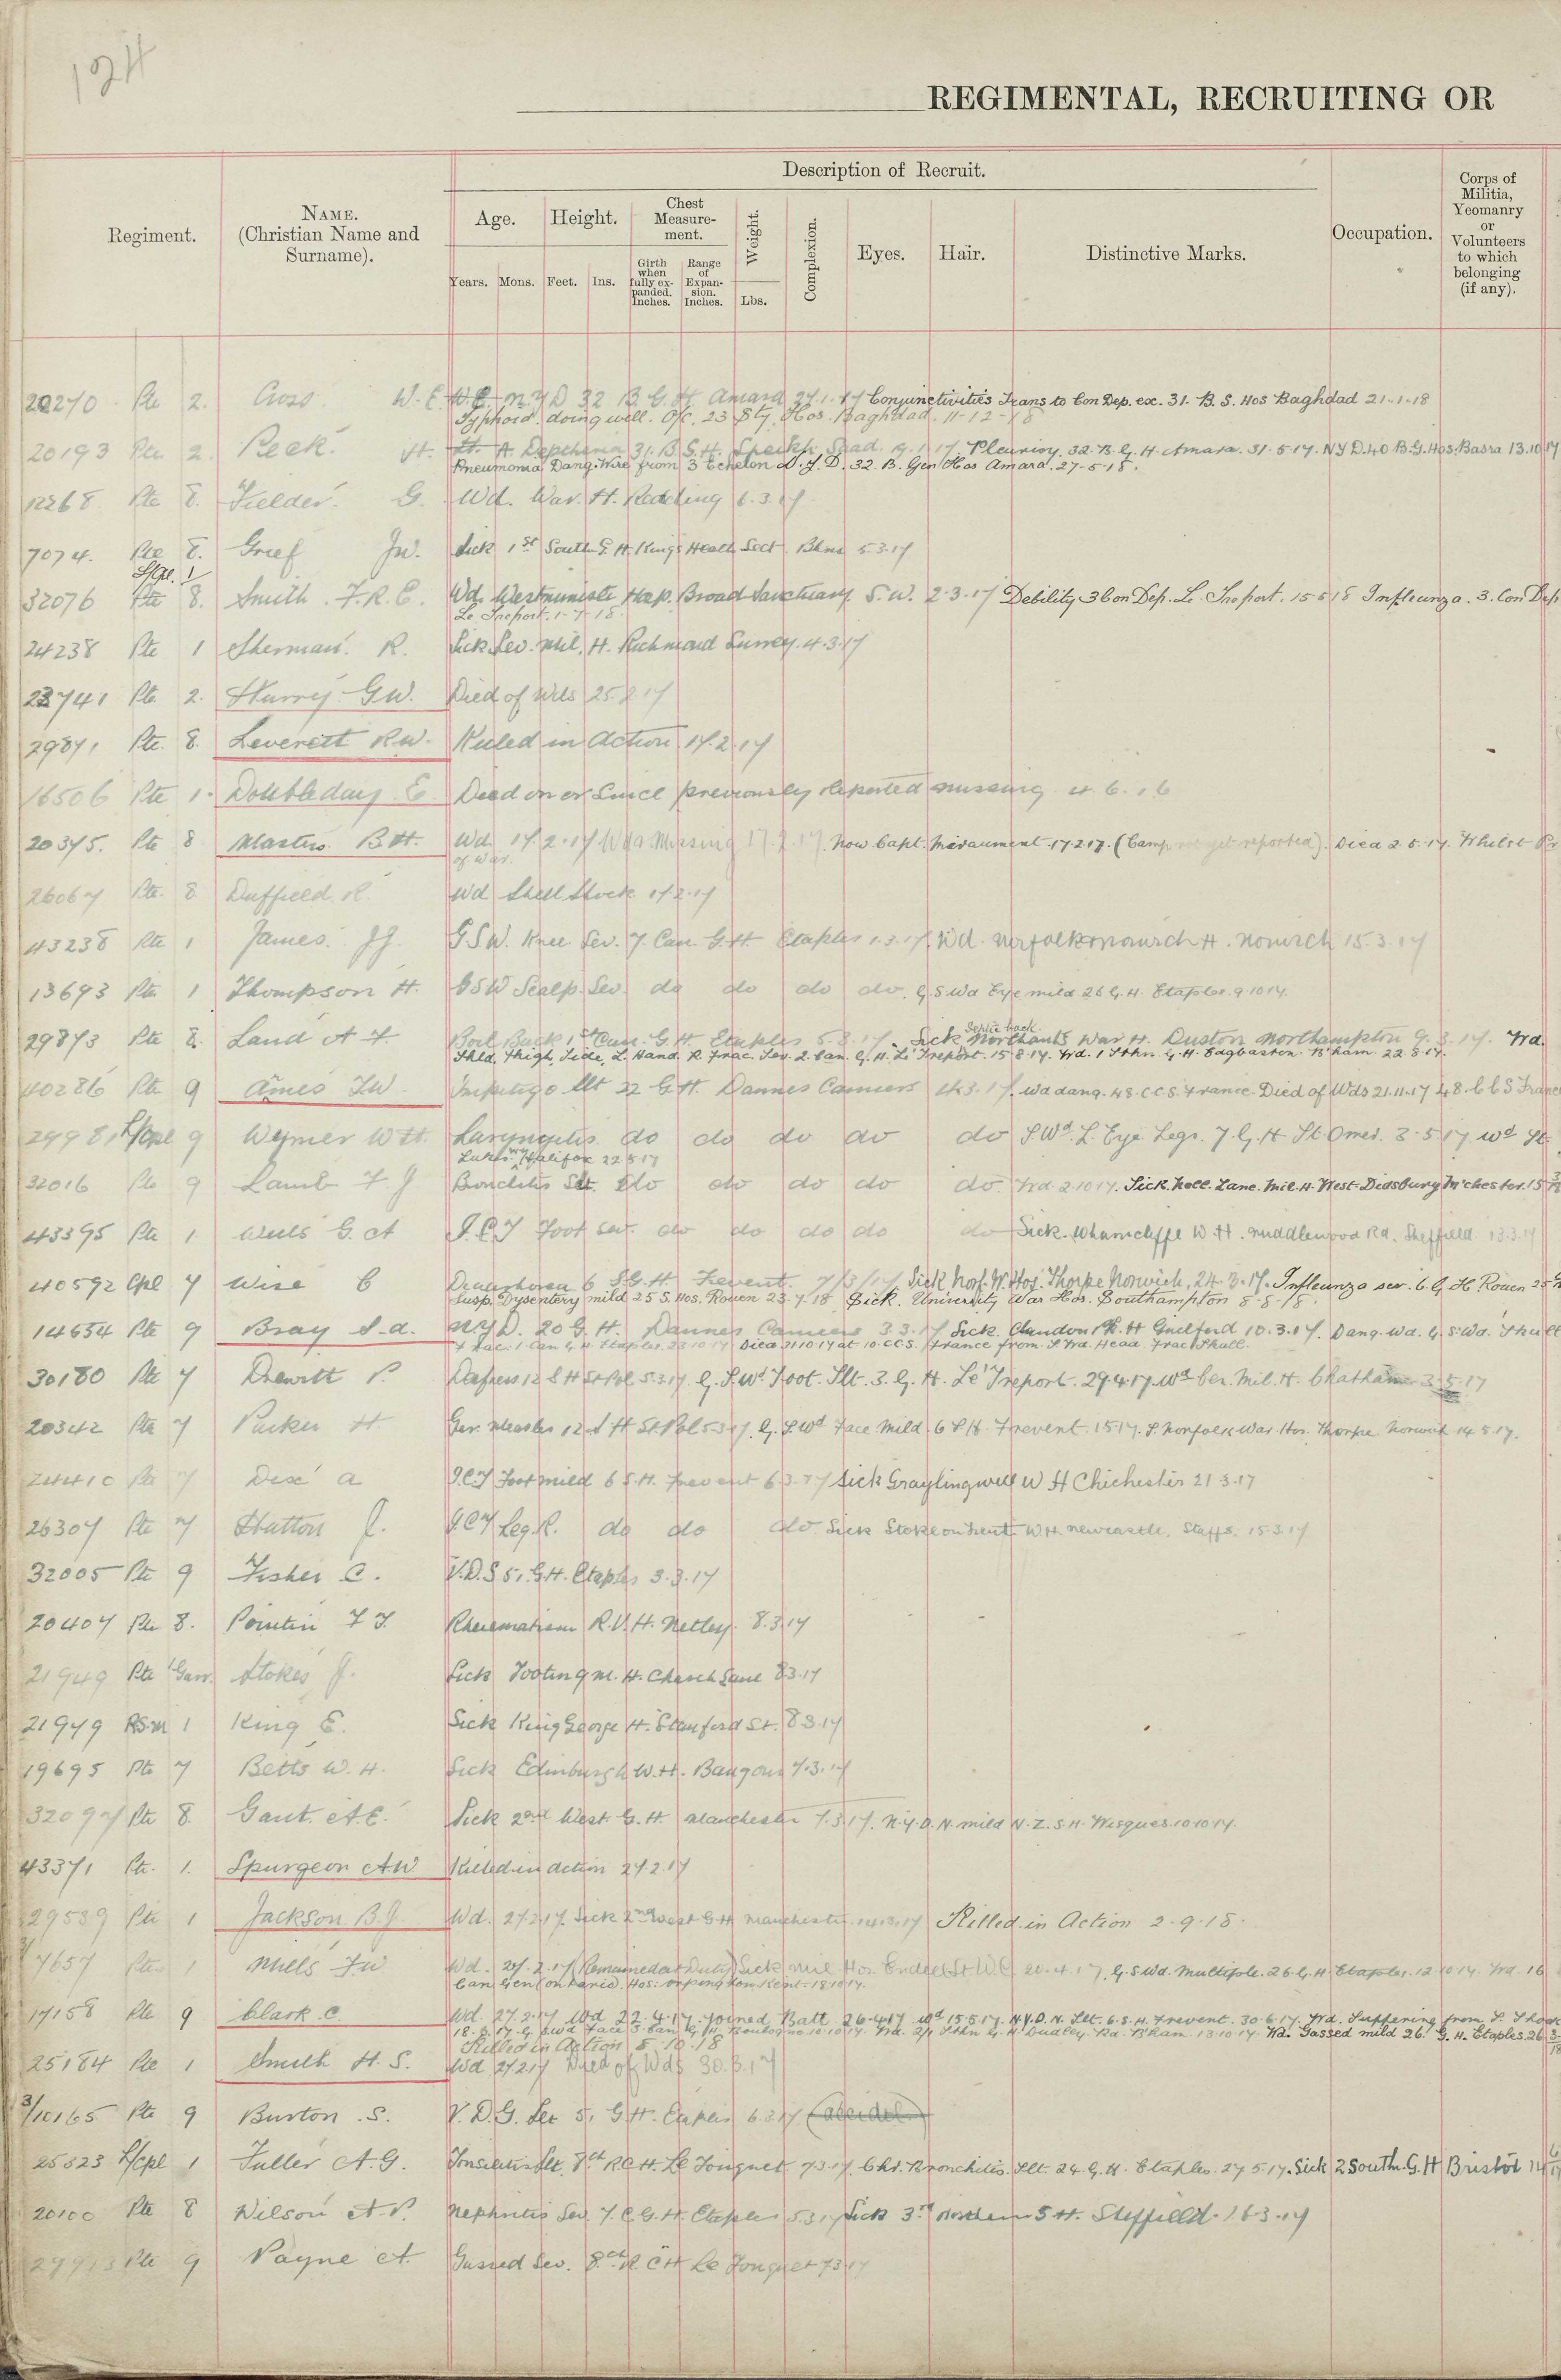 124
REGIMENTAL, RECRUITING OR
Regiment.
NAME.
(Christian Name and
Surname).
Description of Recruit.
Age.
Height.
Chest
Measure-
ment.
Weight.
Complexion.
Eyes.
Hair.
Distinctive Marks.
Occupation.
Corps of
Militia,
Yeomanry
or
Volunteers
to which
belonging
(if any).
Years.
Mons.
Feet.
Ins.
Girth
when
fully ex-
panded.
Inches.
Range
of
Expan-
sion.
Inches.
Lbs.
20270 Pte 2. Cross W. E. N Y D 32 B. G. H Amara 27.1.17 Conjunctivities Trans to Con Dep. ex. 31. B. S. Hos Baghdad 21.1.18
Typhoid. doing well. O/c. 23 Sty. Hos. Baghdad. 11-12-18
20193 Pte 2. Peek. H. 31. B.S.H. Sheikh Saad 9.1.17. Pleurisy. 32. B. G. H. Amara. 31.5.17. NYD. 40 B.G. Hos. Basra 13.10.17
Pneumonia Dang. Wire from 3 Echelon N.Y.D. 32. B. Gen Hos Amara. 27-5-18.
12268 Pte 8. Fielder. G. Wd. War. H. Reading 6.3.17
7074. Pte 8. Grief Jw. Sick 1st South G. H. Kings Heath Sect. Bhm 5.3.17
L/Cpl. 1
32076 Pte 8. Smith. F. R. E. Wd. Westministe Hosp. Broad Sanctuary. S. W. 2.3.17 Debility 3 Con Dep. Le Treport. 15.5.18 Influenza. 3. Con Dep
Le Treport. 1-7-18
24238 Pte 1 Sherman. R. Sick Sev. Mil. H. Richmond Surrey. 4.3.17
23741 Pte 2. Hurry. G W. Died of Wds 25.2.17
29871 Pte. 8. Leverett R.W. Killed in Action 17.2.17
16506 Pte 1. Doubleday. E. Died on or Since previously reported missing 4.6.16
20375. Pte 8 Masters B H. Wd. 17.2.17 Wd & Missing 17.2.17. Now Capt. Miraument. 17.2.17. (Camp not yet reported). Died 2.5.17. Whilst Pr
of War.
26067 Pte. 8 Duffield R. Wd Shell Shock 17.2.17
43238 Pte 1 James. J J. G S W. Knee. Sev. 7. Can. G. H Etaples 1.3.17. Wd. Norfolk & Norwich H. Norwich 15.3.17
13693 Pte 1 Thompson H. G S W Scalp. Sev. do do do do. G. S Wd Eye mild 26 G. H. Etaples. 9.10.17.
29873 Pte 8. Land A F. Boil Back 1st Can. G. H. Etaples 5.3.17. Sick Northants War H. Duston Northampton 9.3.17. Wd.
Septic back
Shld. Thigh, Side, L. Hand. R. Frac. Sev. 2. Can. G. H. Le Treport. 15.8.17. Wd. 1 Sthn. G. H. Edgbaston. B'ham. 22.8.17.
40286 Pte 9 Ames J W. Impetigo Slt 22 G.H. Dannes Camiers 4.3.17. Wd dang. 48. C.C.S. France. Died of Wds 21.11.17 48. C C S France
29981 L/Cpl 9 Wymer W H. Laryngitis. do do do do do S. Wd. L. Eye Legs. 7. G. H St Omer. 3.5.17 Wd St.
Lukes Halifax 22.5.17
32016 Pte 9 Lamb F. J Bronchitis Slt. do do do do do. Wd. 2.10.17. Sick. Nell. Lane. Mil. H. West. Didsbury M'chester.
43395 Pte 1 Wells G. A I.C.T Foot sev. do do do do do Sick. Wharncliffe W. H. Middlewood Rd. Sheffield 13.3.17
40592 Cpl 7 Wise C Diarrhoea 6 S.G.H. Frevent. 7/3/17 Sick Norf. W. Hos. Thorpe Norwich. 24.3.17. Influenza sev. 6. G H Rouen
Susp. Dysentery mild 25 S. Hos. Rouen 23.7.18 Sick. University War Hos. Southampton 8.8.18.
14654 Pte 9 Bray S. A. N.Y D. 20 G. H. Dannes Camiers 3.3.17 Sick. Clandon Pk. H Guilford 10.3.17. Dang. Wd. G. S. Wd. Skull
Frac. 1. Can G. H. Etaples. Died 31.10.17 at 10. CCS. France from S. Wd. Head Frac Skull.
30180 Pte 7 Drewitt P. Deafness 12 S H St Pol 5.3.17 G. S. Wd Foot. Slt. 3. G. H. Le Treport. 29.4.17. Wd Ger. Mil. H. Chatham 3.5.17
20342 Pte 7 Parker H Ger. Measles 12 S H St. Pol 5.3.17. G. S Wd Face. Mild. 6 S H. Frevent. 1.5.17. S. Norfolk War. Hos. Thorpe Norwich 14.5.17.
24410 Pte 7 Dix A I.C.T Foot mild 6 S.H. Frevent 6.3.17 Sick Graylingwell W H Chichester 21.3.17
26307 Pte 7 Hatton J. I.C.T Leg. R. do do do. Sick Stoke on Trent. W.H. Newcastle. Staffs. 15.3.17
32005 Pte 9 Fisher C. V.D.S 51 G.H. Etaples 3.3.17
20407 Pte 8. Pointin F J. Rheumatism R.V.H. Netley. 8.3.17
21949 Pte 1 Garr. Stokes J. Sick Tooting M. H. Church Lane 8.3.17
21979 R.S.M 1 King E. Sick King George H. Stamford St. 8.3.17
19695 Pte 7 Betts W. H. Sick Edinburgh W.H. Bangour 7.3.17
32097 Pte 8. Gant. A E. Sick 2nd West. G. H. Manchester 7.3.17. N.Y.D. N. mild N. Z. S. H. Wisques. 10.10.17.
43371 Pte. 1. Spurgeon A W Killed in action 27.2.17
29539 Pte 1 Jackson. B J Wd. 27.2.17. Sick 2nd West G H. Manchester. 14.3.17 Killed in Action 2.9.18.
7657 Pte 1 Mills J W Wd. 27.2.17 (Remained at Duty) Sick Mil Hos. Endell St W C 21.4.17. G. S Wd. Multiple. 26. G. H Etaples. 12.10.17. Wd. 16
Can Gen (Ontario) Hos. Orpington Kent. 18.10.17.
17158 Pte 9 Clark. C. Wd. 27.2.17 Wd 22.4.17. Joined Batt 26.4.17 Wd 15.5.17. N.Y.D. N. Slt. 6. S. H. Frevent. 30.6.17. Wd. Suffering from S. Shock
18.8.17. G. S. Wd Face 3 Can G. H. Boulogne 10.10.17. Wd. 2/1 Sthn G. H. Dudley. Rd. B'ham. 13.10.17. Wd. Gassed mild 26. G. H. Etaples.
Killed in Action 8.10.18
25184 Pte 1 Smith H. S. Wd 27.2.17 Died of Wds 30.3.17
3/10165 Pte 9 Burton. S. V. D. G. Sev 51 G H. Etaples 6.3.17
25823 L/Cpl 1 Fuller A. G. Tonsilitis Slt. 8th R C H. Le Touquet. 7.3.17. Chr. Bronchitis. Slt. 24. G. H. Etaples. 27.5.17. Sick 2 South. G. H Bristol
20100 Pte 8 Wilson A. P. Nephritis Sev. 7. C G. H. Etaples 5.3.17 Sick 3rd Northern S H. Sheffield. 16.3.17
29913 Pte 9 Payne A. Gassed Sev. 8th R. C H Le Touquet 7.3.17